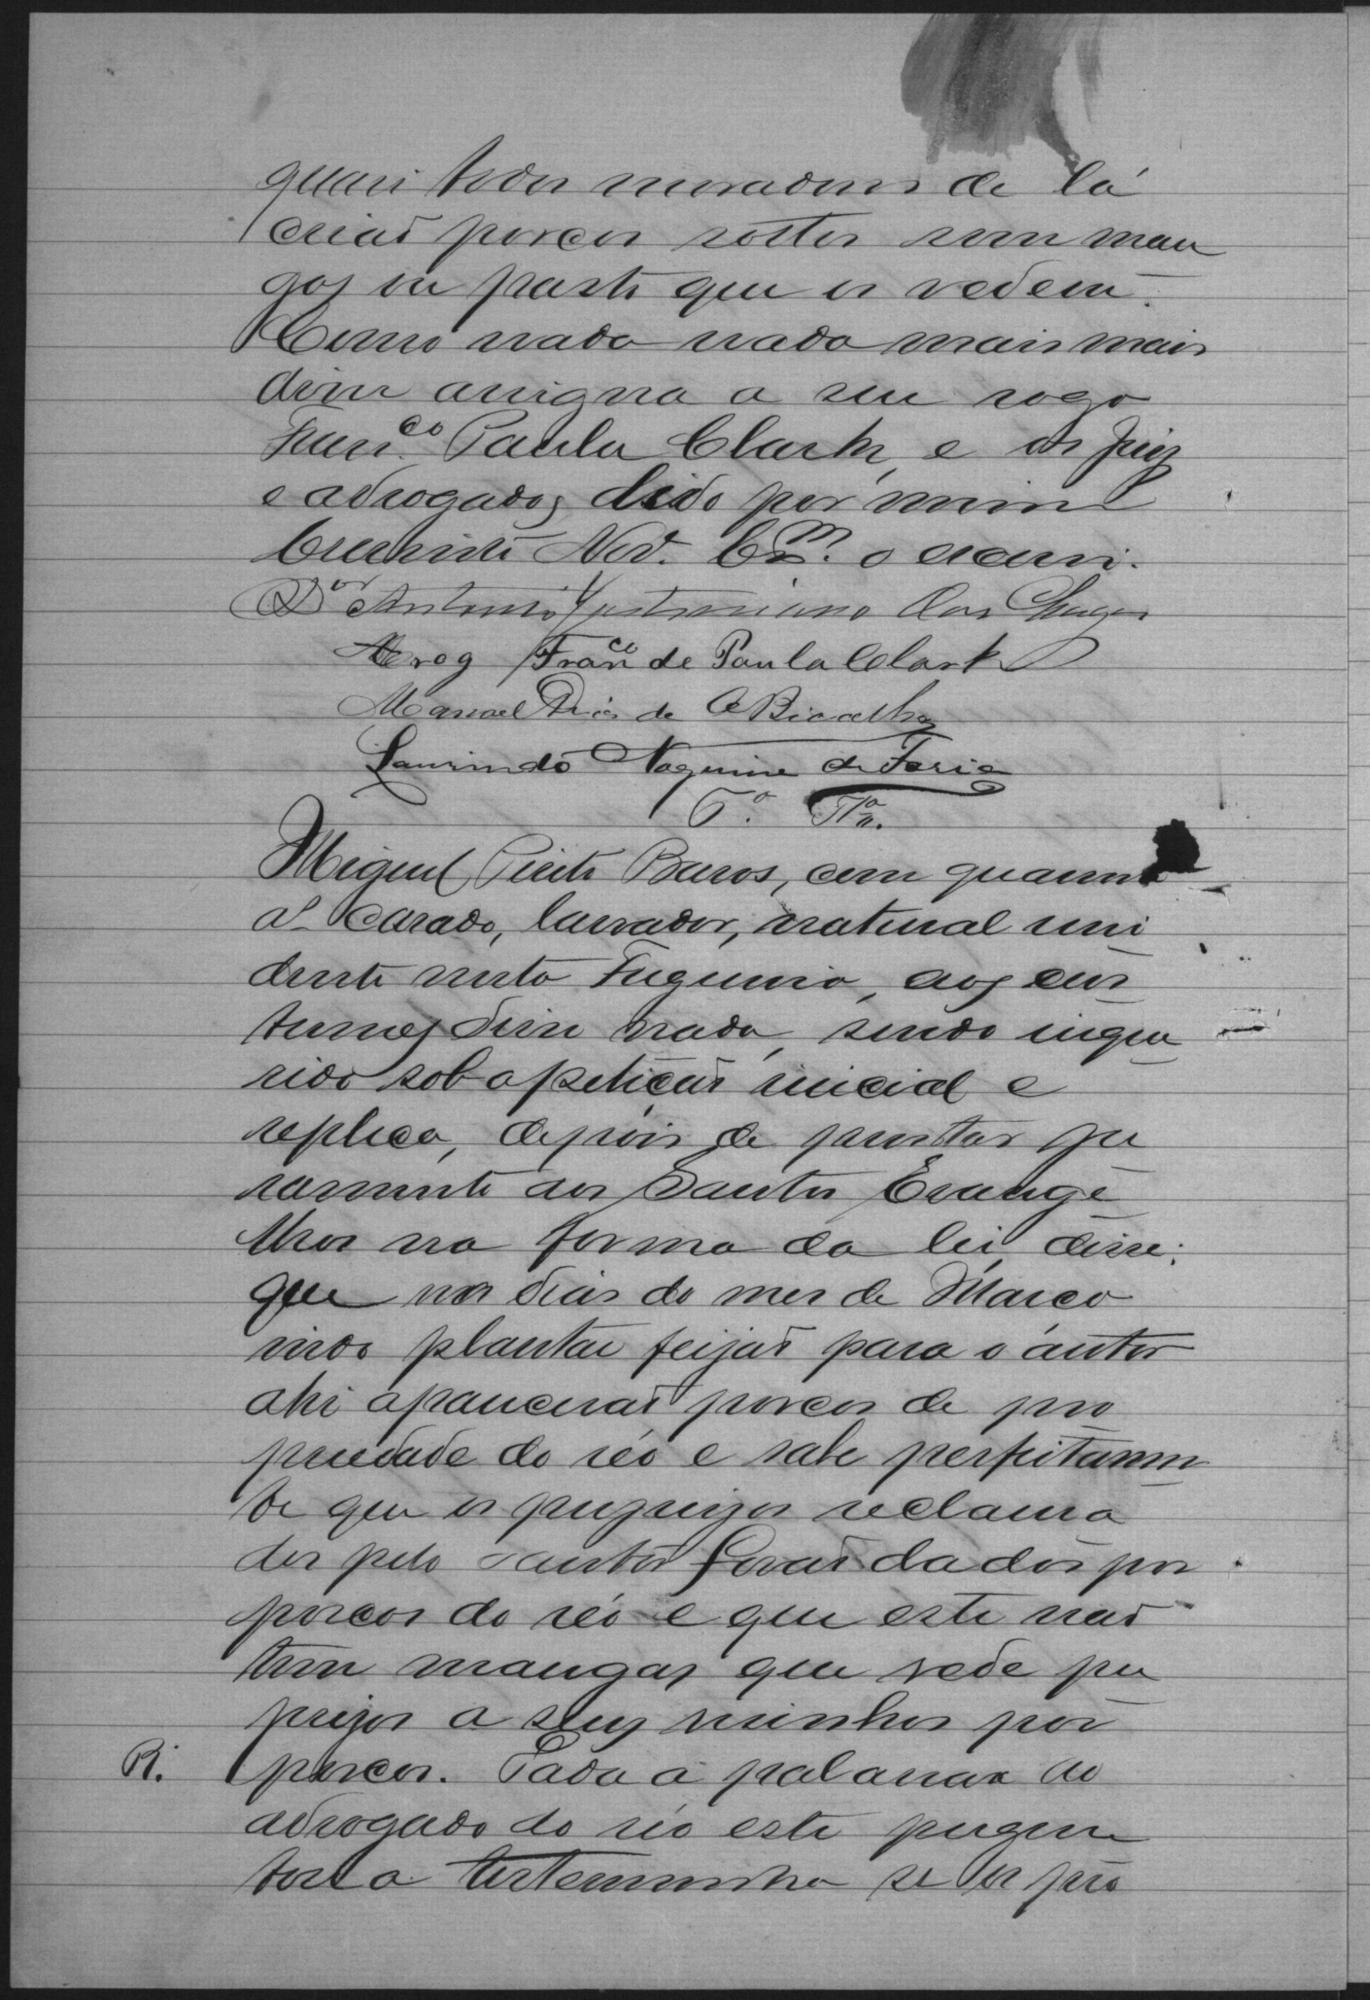 quasi todos moradores de lá
criaõ porcos soltos sem man
gas ou pasto que os vedem.
Como nada nada mais mais
disse assigna a seu rogo
Fran.co Paula Clark, e os Juiz
e advogados, lido por mim
o escrevi.
Dor Antonio Justiniano das Chagas
Arog Franco de Paula Clark
Manoel Dias de Bicalho
Laurindo Nogueira de Faria
5.ª Tª.
Miguel Pinto Barros, com quarenta
aˢ casado, lavrador, natural resi
dente nesta Freguesia, aos cos
tumes disse nada, sendo inque
rido sob a petiçaõ inicial e
replica, depois de prestar ju
ramento aos Santos Evange
lhos na forma da lei, disse:
que nos dias do mes de Março
indo plantar feijaõ para o autor
ahi appareceraõ porcos de pro
priedade do réo e sabe perfeitamen
te que os prejuizos reclama
dos pelo autor foraõ dados por
porcos do réo e que este naõ
tem mangas que vede pre
juizos a seus visinhos por
porcos. Dada a palavra ao
R.
advogado do réo este pergun
tou a testemunha se os pre